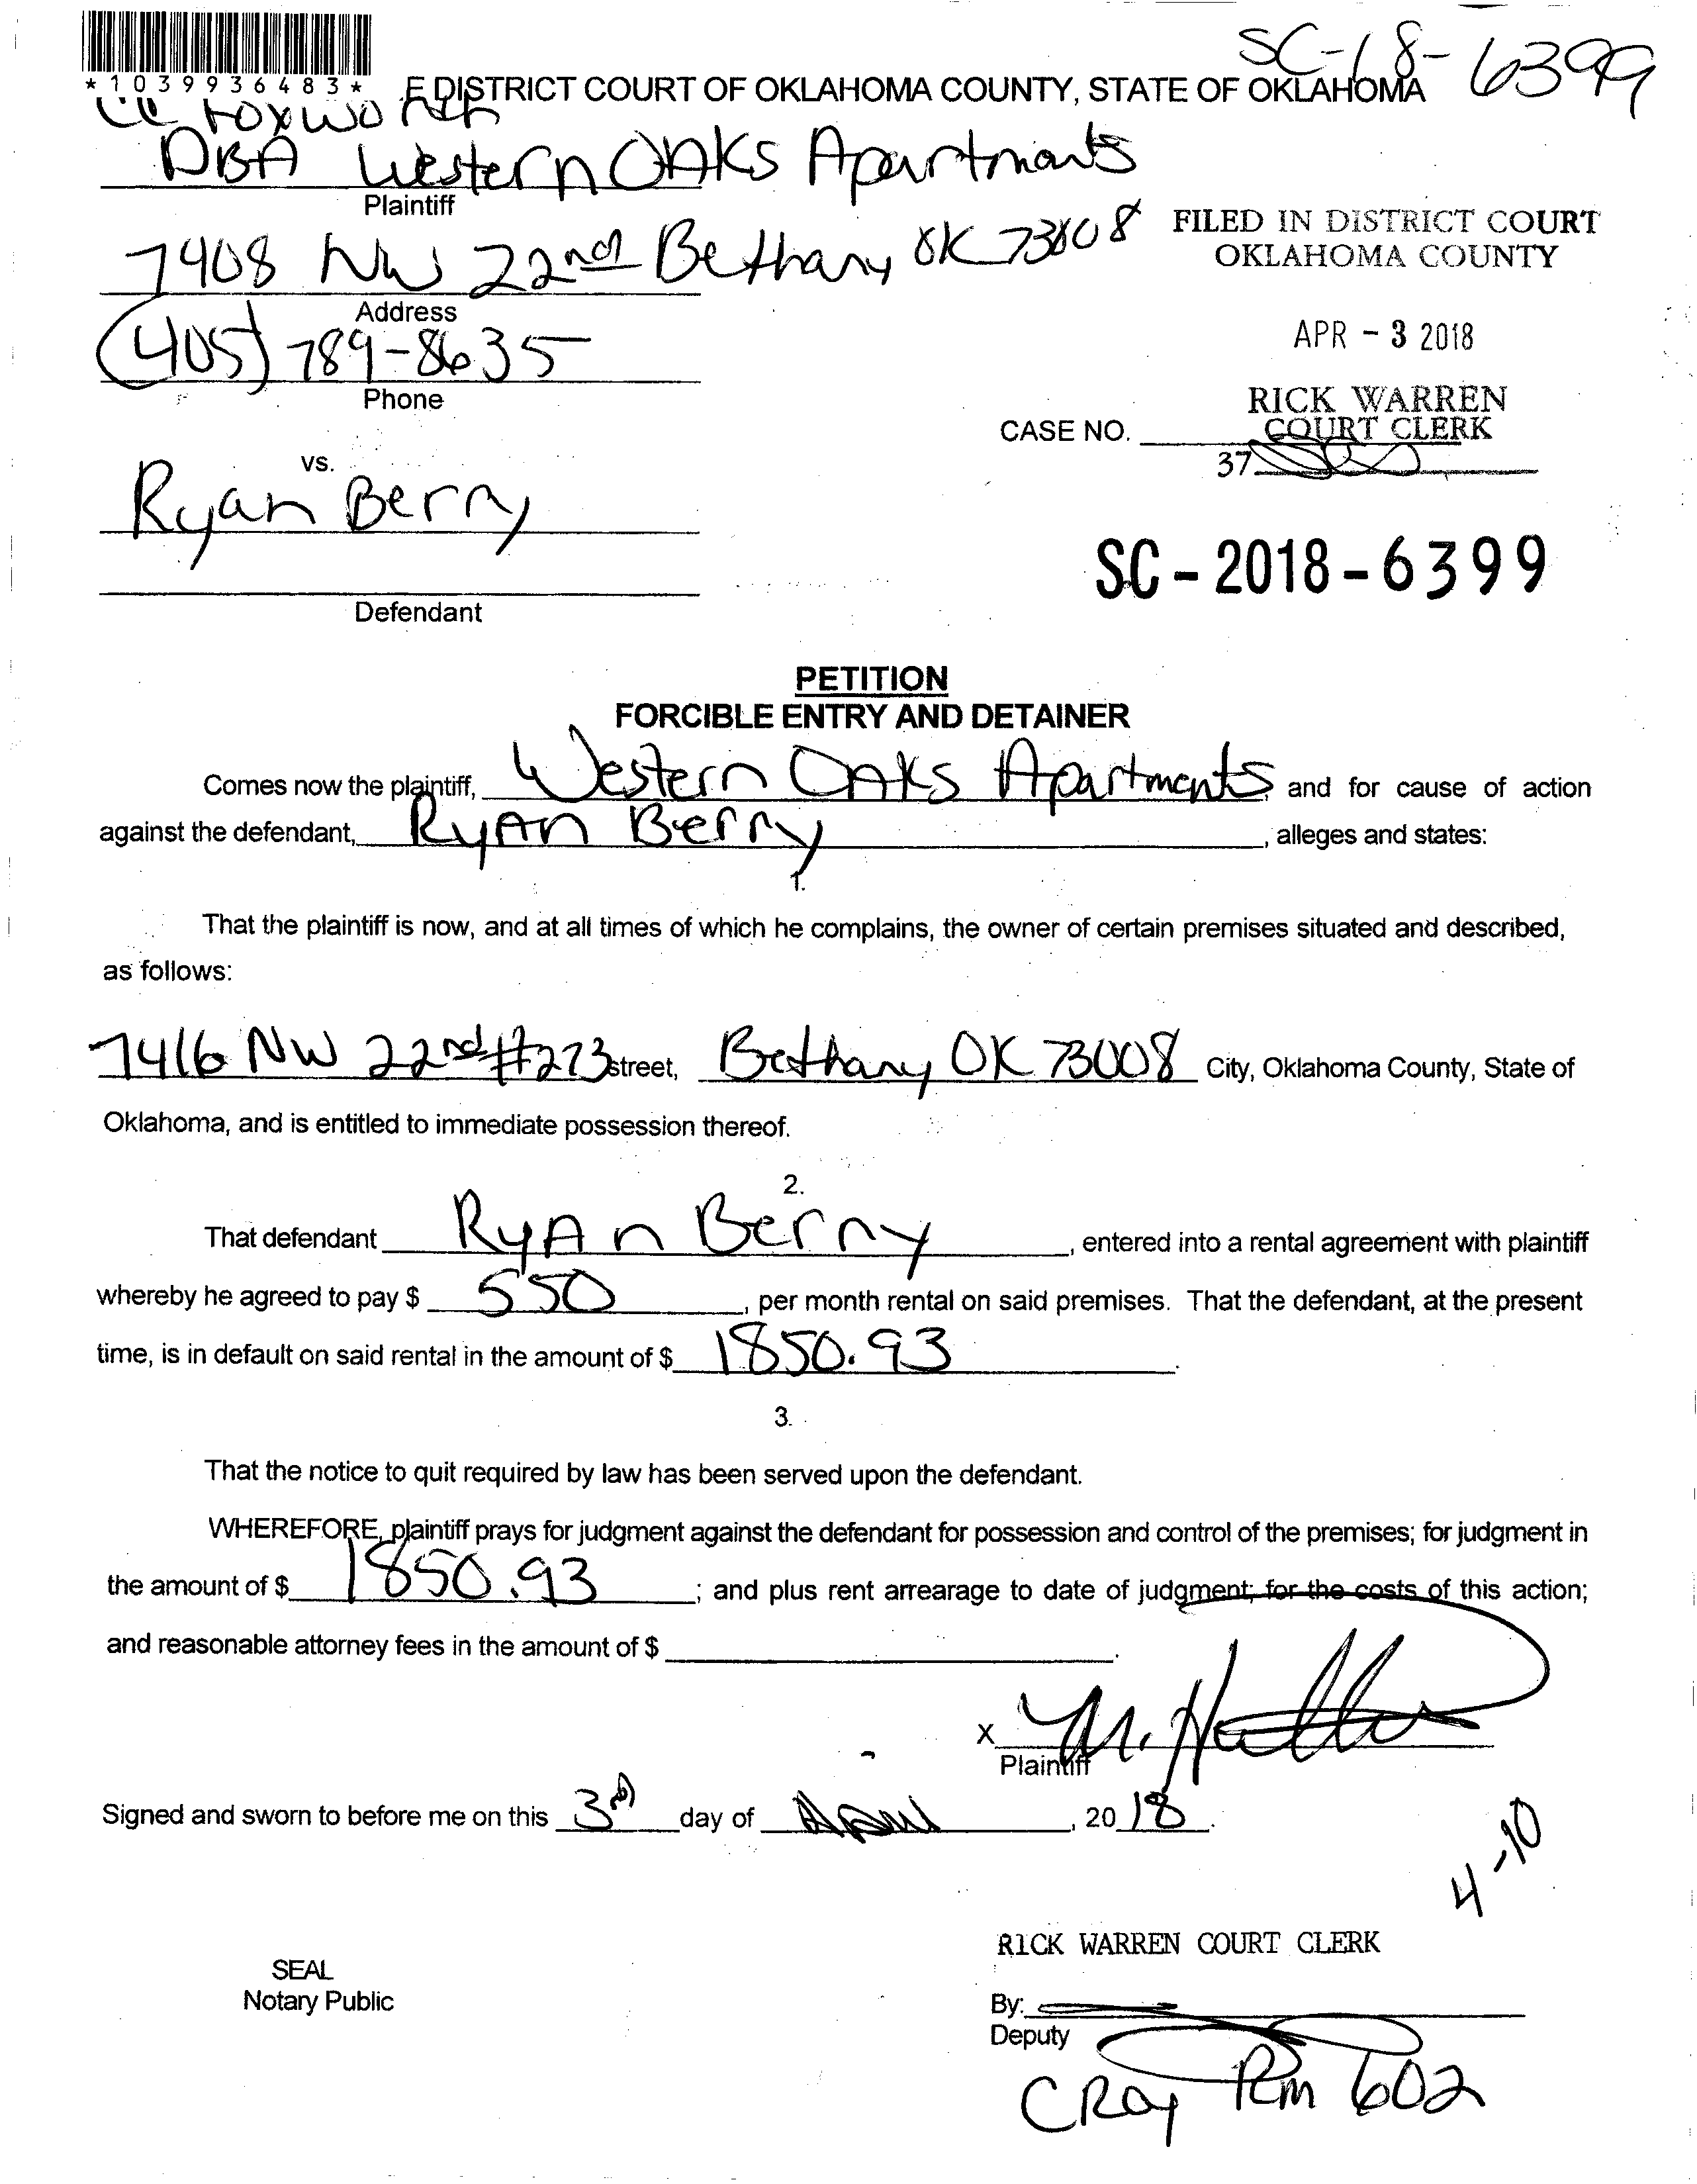 SC-18-6399
*1039936483*
E DISTRICT COURT OF OKLAHOMA COUNTY, STATE OF OKLAHOMA
Foxworth
DBA Western OAKS Apartments
Plaintiff
7408 NW 22nd Bethany OK 73008
FILED IN DISTRICT COURT
OKLAHOMA COUNTY
Address
(405) 789-8635
APR - 3 2018
Phone
RICK WARREN
COURT CLERK
CASE NO.
37
vs.
Ryan Berry
SC-2018-6399
Defendant
PETITION
FORCIBLE ENTRY AND DETAINER
Comes now the plaintiff, Western OAKS Apartments, and for cause of action
against the defendant, RyAn Berry, alleges and states:
1.
That the plaintiff is now, and at all times of which he complains, the owner of certain premises situated and described,
as follows:
7416 NW 22nd #273 street, Bethany OK 73008 City, Oklahoma County, State of
Oklahoma, and is entitled to immediate possession thereof.
2.
That defendant RyAn Berry, entered into a rental agreement with plaintiff
whereby he agreed to pay $ 550, per month rental on said premises. That the defendant, at the present
time, is in default on said rental in the amount of $ 1850.93.
3.
That the notice to quit required by law has been served upon the defendant.
WHEREFORE, plaintiff prays for judgment against the defendant for possession and control of the premises; for judgment in
the amount of $ 1850.93; and plus rent arrearage to date of judgment; for the costs of this action;
and reasonable attorney fees in the amount of $
X
Plaintiff
Signed and sworn to before me on this 3rd day of April, 2018.
4-10
RICK WARREN COURT CLERK
SEAL
Notary Public
By:
Deputy
CRoy Rm 602